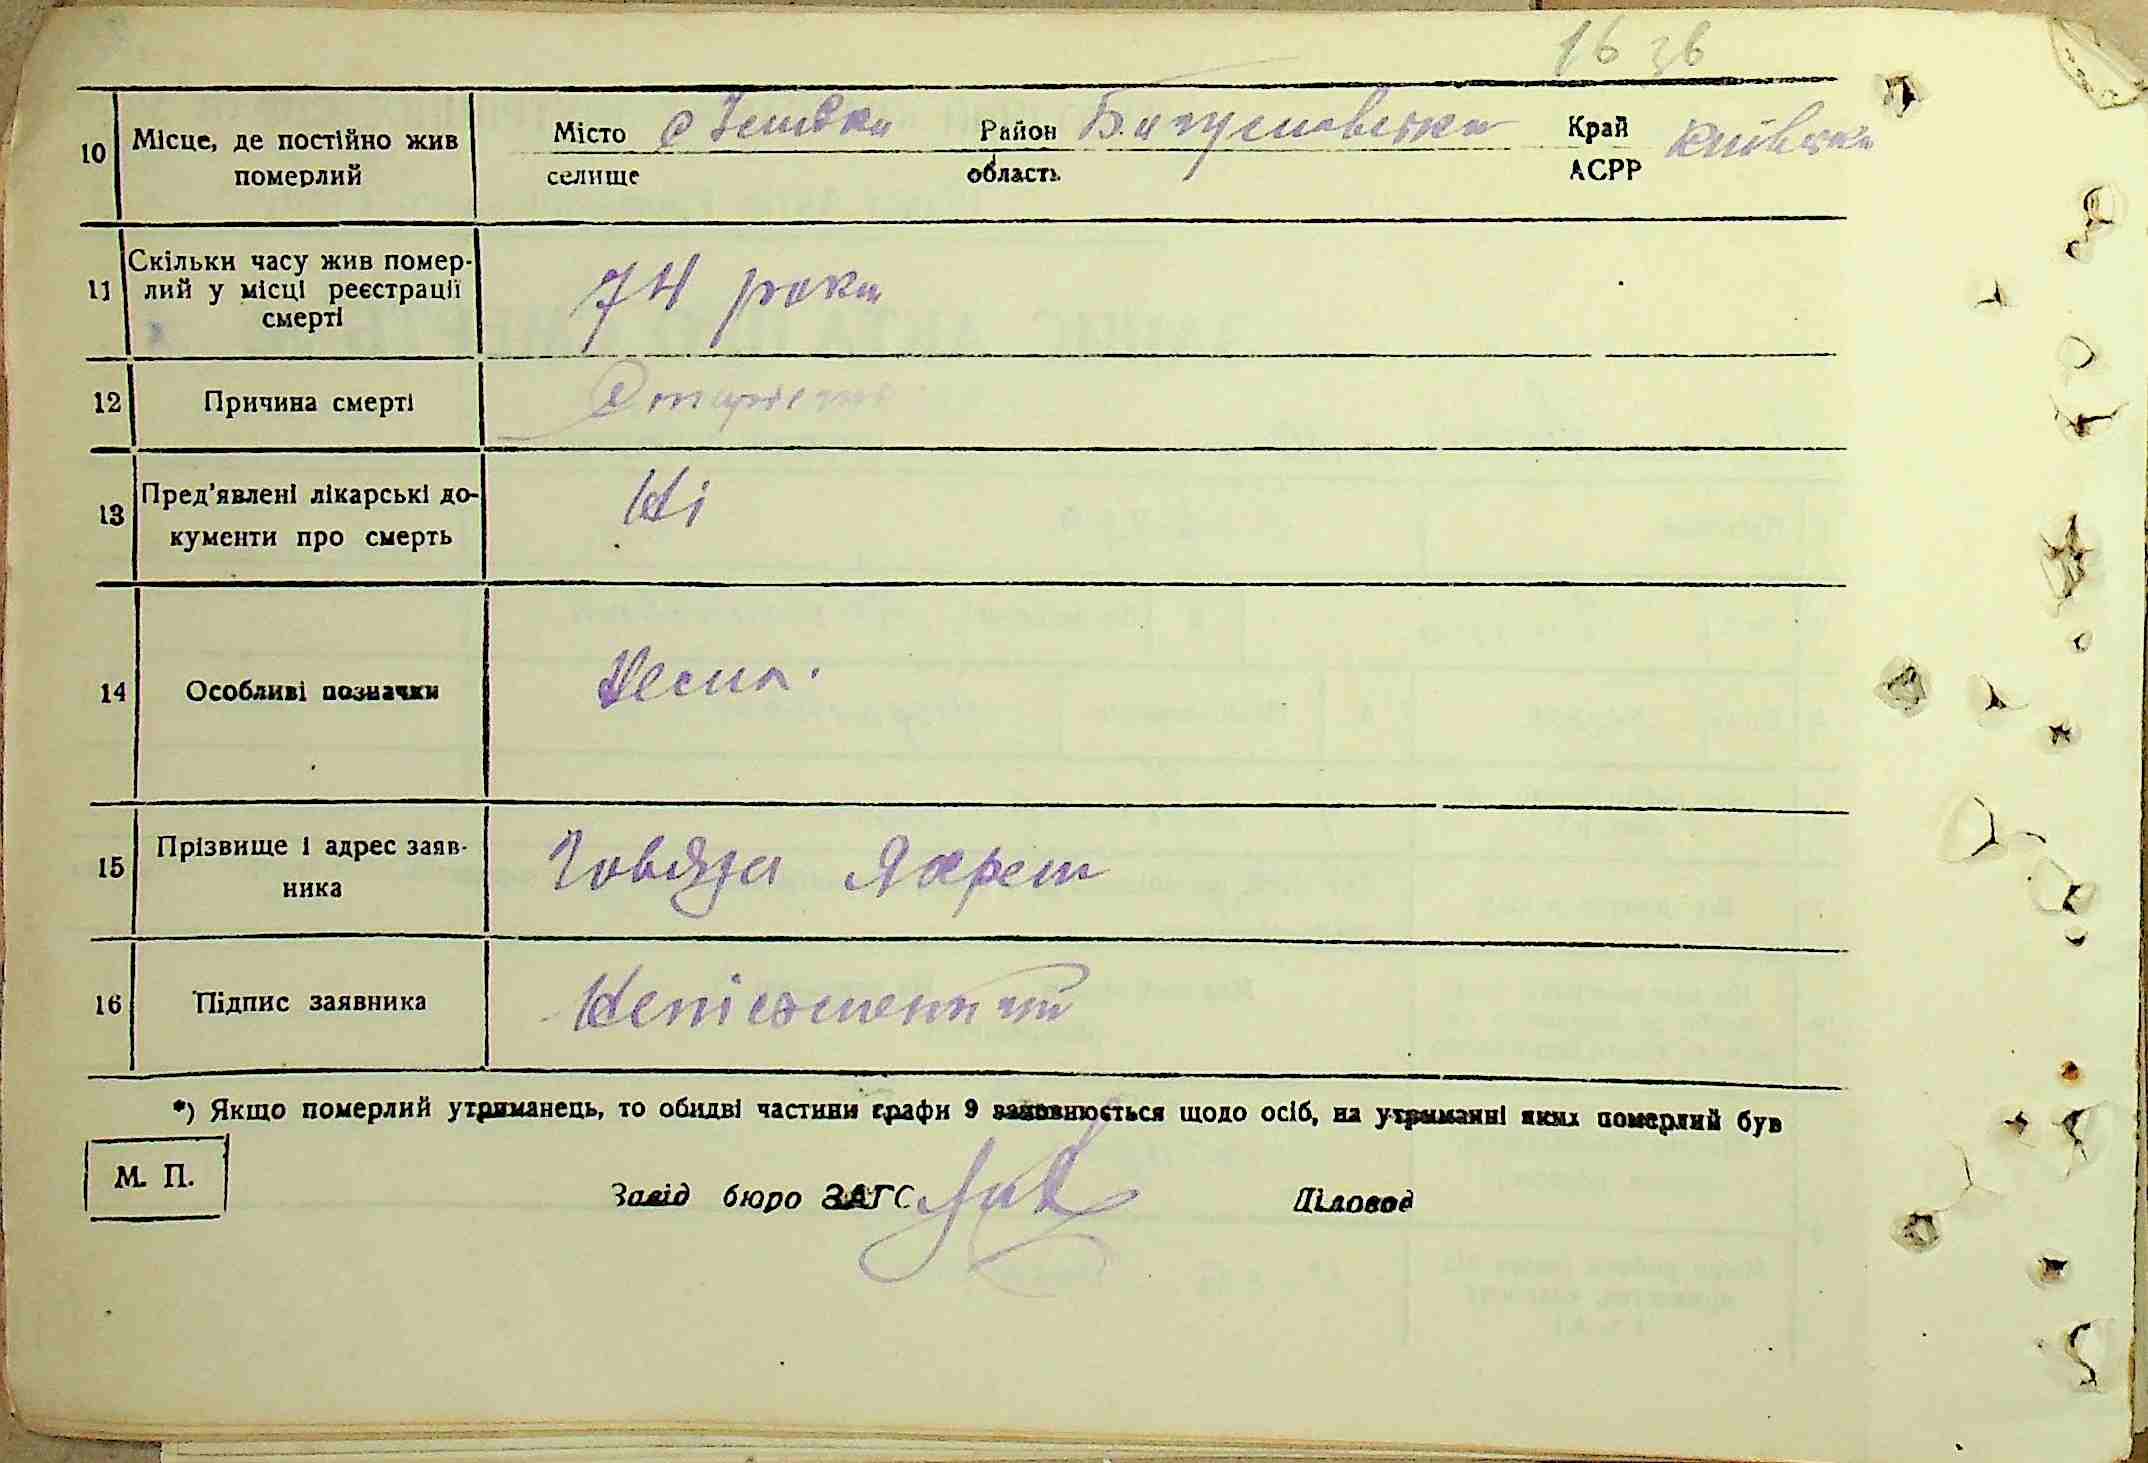 16 зв
10 Місце, де постійно жив померлий Місто селище с Район область Богуславська Край АСРР Київська
11 Скільки часу жив помер-
лий у місці реєстрації
смерті 74 роки
12 Причина смерті Старість
13 Пред'явлені лікарські до-
кументи про смерть Ні
14 Особливі позначки Нема.
15 Прізвище і адрес заяв-
ника Говяза
16 Підпис заявника Неписьменний
*) Якщо померлий утриманець, то обидві частини графи 9 заповнюється щодо осіб, на утриманні яких померлий був
М. П.
Завід бюро ЗАГС Діловод